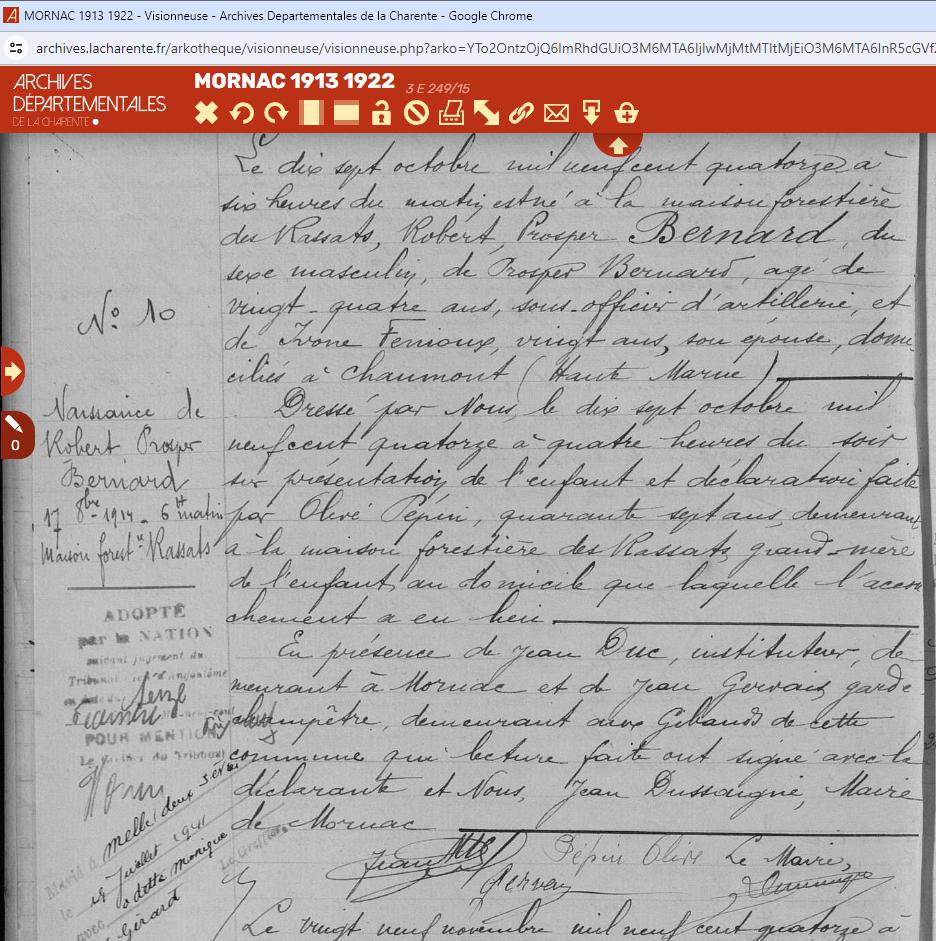 MORNAC 1913 1922 - Visionneuse - Archives Departementales de la Charente - Google Chrome
archives.lacharente.fr/arkotheque/visionneuse/visionneuse.php?arko=
ARCHIVES
DÉPARTEMENTALES
DE LA CHARENTE
MORNAC 1913 1922 3 E 249/15
Le dix sept octobre mil neuf cent quatorze à
six heures du matin est né à la maison forestière
des Rassats, Robert, Prosper Bernard, du
sexe masculin, de Prosper Bernard, agé de
vingt-quatre ans, sous-officier d'artillerie, et
de Ivone Fenioux, vingt ans, son épouse, domi-
ciliés à Chaumont (Haute Marne)
Dressé par Nous, le dix sept octobre mil
neuf cent quatorze à quatre heures du soir
sur présentation de l'enfant et déclaration faite
par Olive Pépin, quarante sept ans, demeurant
à la maison forestière des Rassats, grand-mère
de l'enfant, au domicile que laquelle l'accou
chement a eu lieu.
En présence de Jean Duc, instituteur, de-
meurant à Mornac et de Jean Gervais garde
champêtre, demeurant aux Gibauds de cette
commune qui lecture faite ont signé avec la
déclarante et Nous, Jean Dussaigne, Maire
de Mornac
Pépin Olive Le Maire,
Le vingt neuf novembre mil neuf cent quatorze à
N° 10
Naissance de
Robert Prosper
Bernard
17 8bre 1914 - 6 h matin
Maison forest Rassats
0
ADOPTÉ
par la NATION
suivant jugement du
Tribunal d'Angoulême
POUR MENTION
Le Greffier du Tribunal
Marié à Melle, deux Sèvres
le juillet 1941
avec Odette Monique
Girard